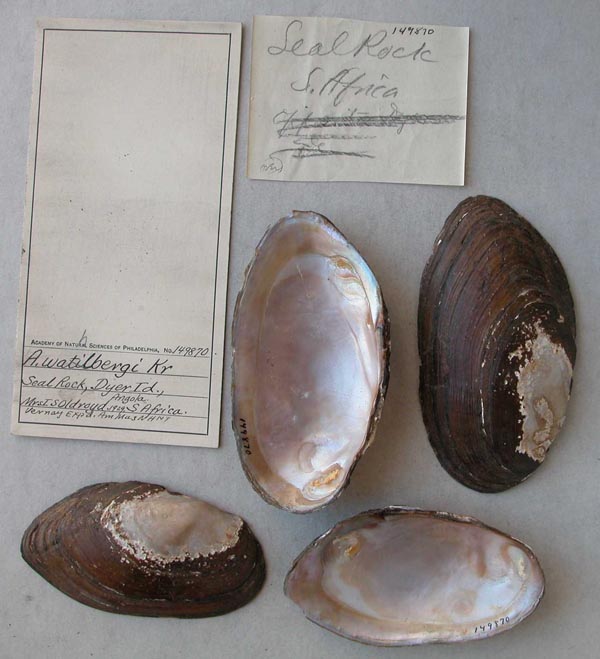 149870
Seal Rock
S. Africa
ACADEMY OF NATURAL SCIENCES OF PHILADELPHIA, No. 149870
A. watilbergi Kr
Seal Rock, Dyer Id.,
Angola
Mrs T.S Oldroyd, 1919 S Africa.
Vernay Exp'd. Am Mus NH
149870
149870